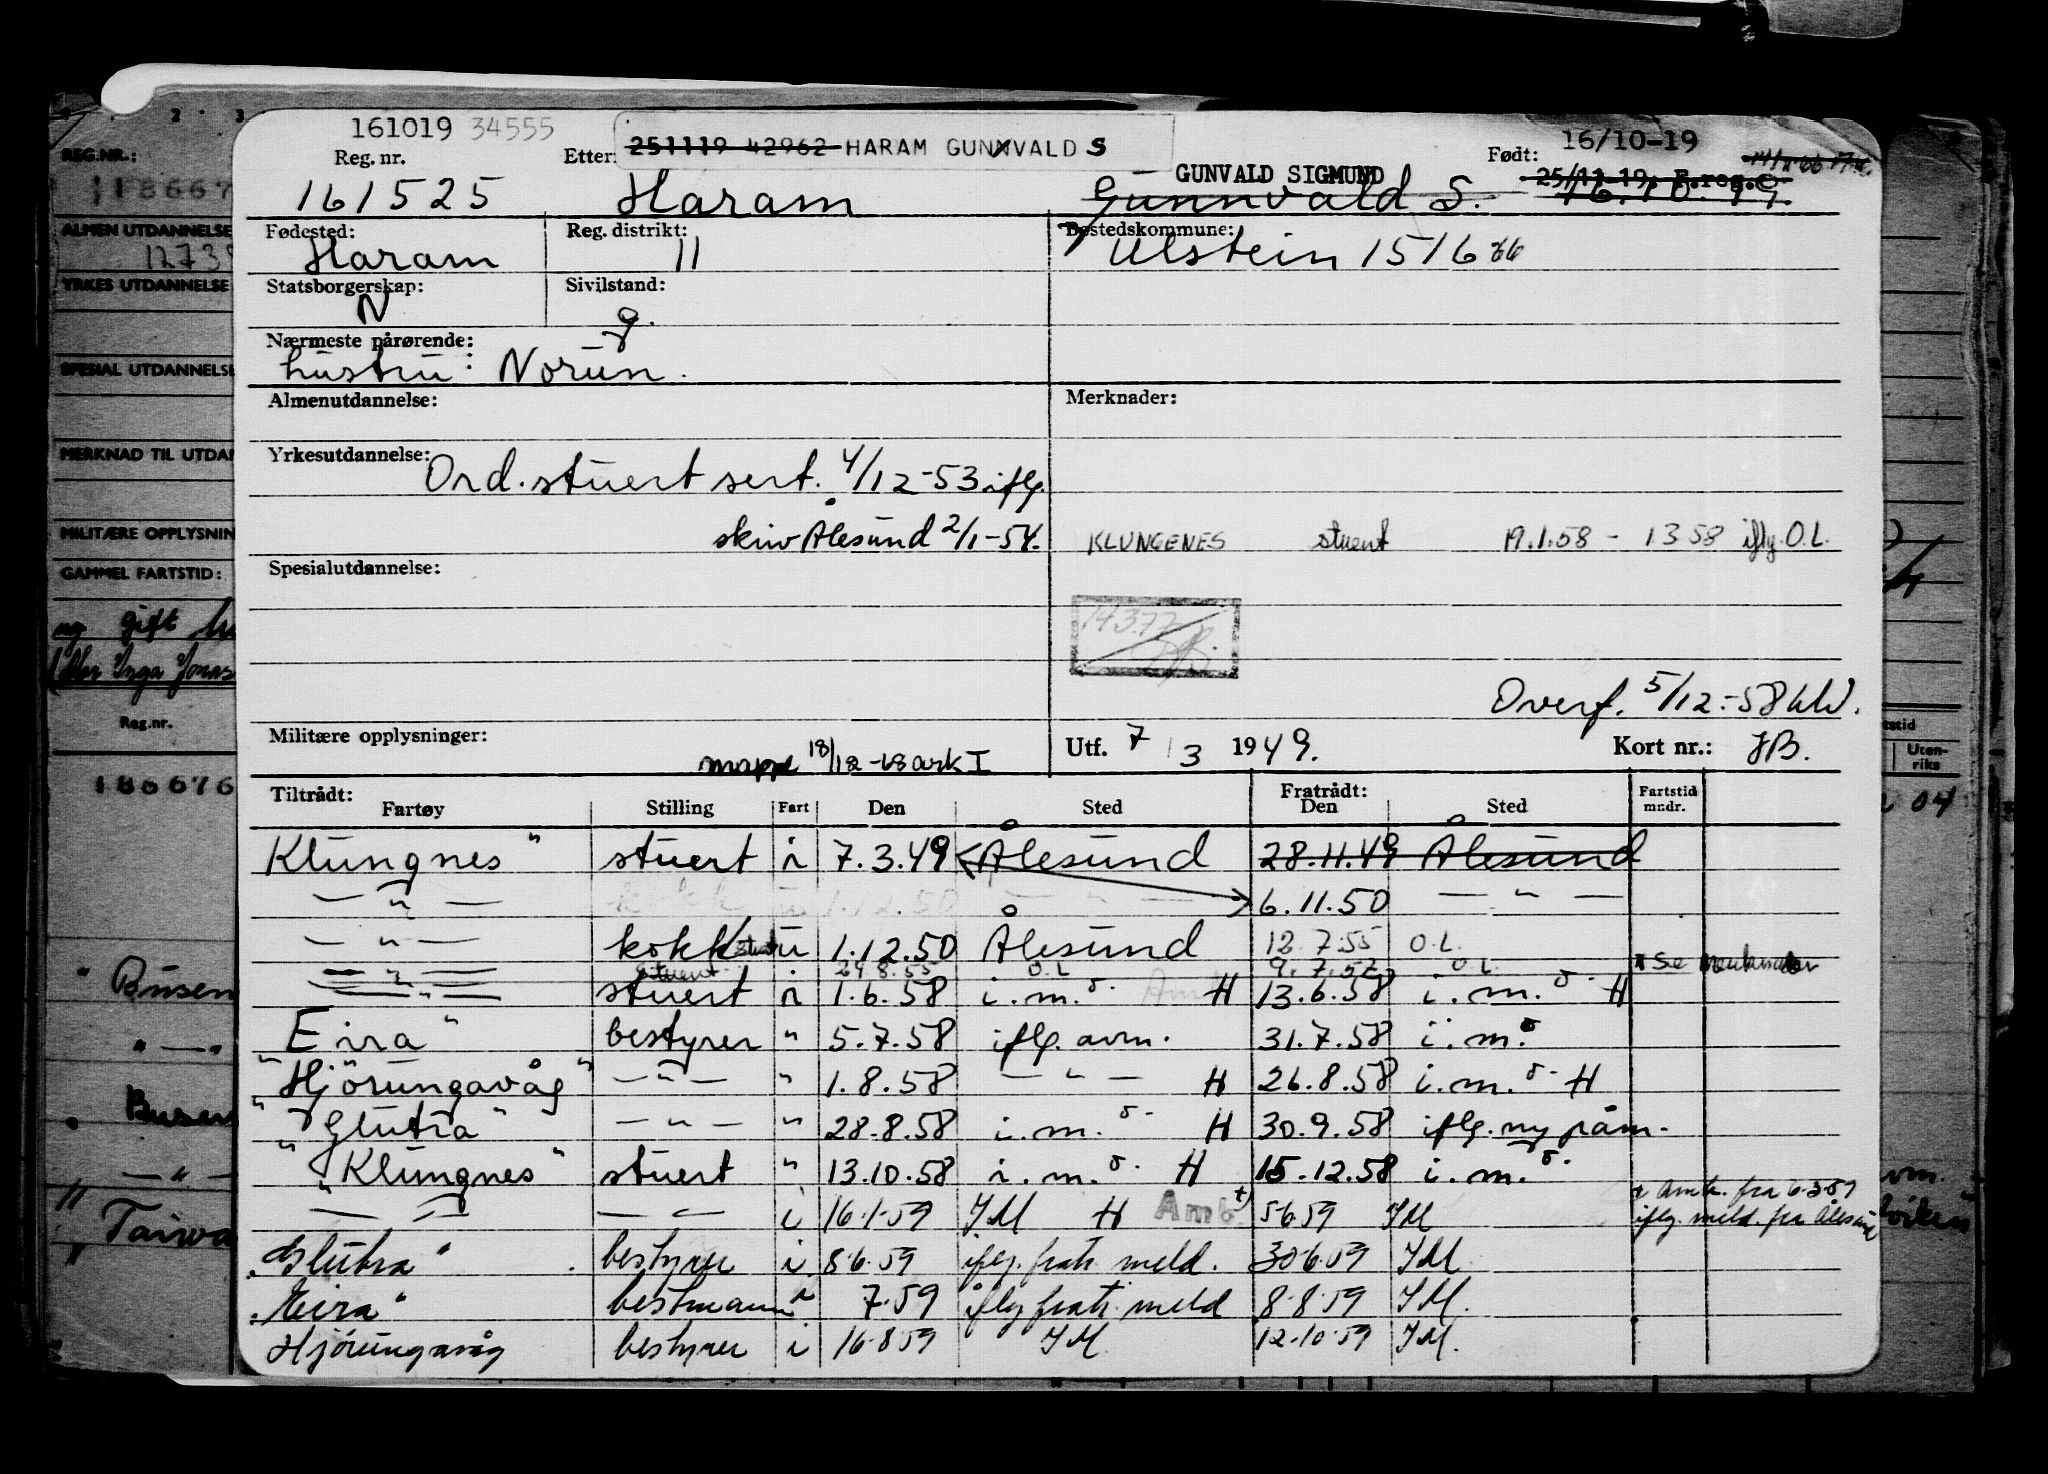 161019 34555
251119 42962 HARAM GUNNVALD S
16/10-19
Reg. nr.
Etter:
Født:
25/11-19.
161525
Haram
GUNVALD SIGMUND
Gunnvald S.
16.10.19.
Fødested:
Reg. distrikt:
Bostedskommune:
Haram
11
Ulstein 1516 66
Statsborgerskap:
Sivilstand:
N
g.
Nærmeste pårørende:
hustru: Norun.
Almenutdannelse:
Merknader:
Yrkesutdannelse:
Ord. stuert sert. 4/12-53 iflg.
skriv Ålesund 2/1-54.
KLUNGENES stuert 19.1.58 - 1 3 58 iflg. O.L.
Spesialutdannelse:
14377
Overf. 5/12-58
Militære opplysninger:
mappe 18/12-68 ark I
Utf. 7/3 1949.
Kort nr.: JB.
Tiltrådt:
Fratrådt:
Fartstid mndr.
Fartøy Stilling Fart Den Sted Den Sted
Klungnes" stuert i 7.3.49 Ålesund 28.11.49 Ålesund
— " — kokk u 1.12.50 — " — 6.11.50 — " —
— " — kokk stuert u 1.12.50 Ålesund 12.7.55 O.L.
— " — stuert 29 8.55 O.L 9.7.57 O.L. x se merknader
— " — stuert i 1.6.58 i.m.o. H 13.6.58 i.m.o. H
Eira" bestyrer " 5.7.58 iflg. avm. 31.7.58 i.m.o
"Hjørungavåg" — " — " 1.8.58 — " — H 26.8.58 i.m.o. H
"Glutra" — " — " 28.8.58 i.m.o. H 30.9.58 iflg. ny påm.
"Klungnes" stuert " 13.10.58 i.m.o. H 15.12.58 i.m.o.
— " — — " — i 16.1.59 IM H Amb. +) 5 6 59 IM
+ Amb. fra 6-3-59
iflg. meld. fra Ålesund
"Glutra" bestyrer i 8 6.59 iflg. fratr. meld. 30 6.59 IM
"Eira" bestmann " 7.59 iflg fratr. meld 8.8.59 IM.
Hjørungavåg bestyrer i 16.8 59 IM. 12.10.59 IM.
REG.NR.:
118667
ALMEN UTDANNELSE
1273
YRKES UTDANNELSE
SPESIAL UTDANNELSE
MERKNAD TIL UTDAN
MILITÆRE OPPLYSNIN
GAMMEL FARTSTID:
ug gift
Inga Jonas
Reg.nr.
186676
" Busen
" — "
" Busen
— " —
" Taiwa
"
Uten-
riks
04